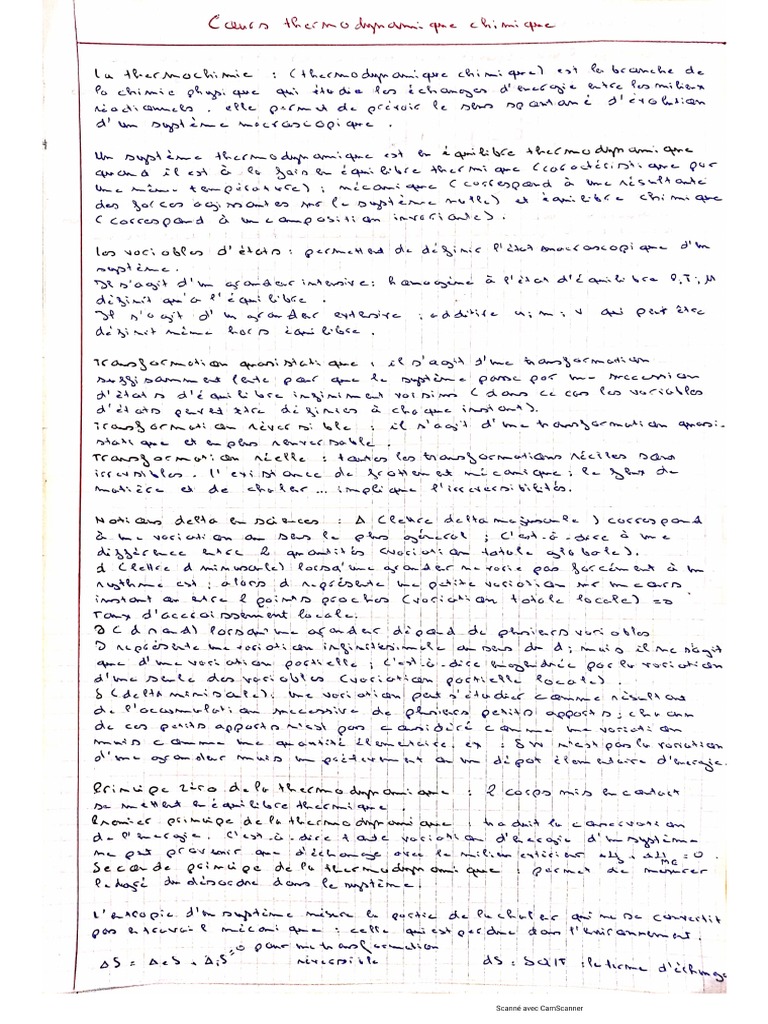 Cours thermodynamique chimique
La thermochimie : (thermodynamique chimique) est la branche de
la chimie physique qui étudie les échanges d'énergie entre les milieux
réactionnels. elle permet de prévoir le sens spontané d'évolution
d'un système macroscopique.
Un système thermodynamique est en équilibre thermodynamique
quand il est à la fois en équilibre thermique (caractéristique par
une même température) ; mécanique (correspond à une résultante
des forces agissantes sur le système nulle) et équilibre chimique
(correspond à une composition invariante).
Les variables d'états : permettent de définir l'état macroscopique d'un
système.
Il s'agit d'un grandeur intensive : homogène à l'état d'équilibre P, T,
définit qu'a l'équilibre.
Il s'agit d'un grandeur extensive : additive n ; m ; v qui peut être
définit même hors équilibre.
Transformation quasistatique : il s'agit d'une transformation
suffisamment lente pour que le système passe par une succession
d'états d'équilibre infiniment voisins (dans ce cas les variables
d'états peuvent être définies à chaque instant).
Transformation réversible : il s'agit d'une transformation quasi-
statique et en plus renversable.
Transformation réelle : toutes les transformations réelles sont
irréversibles. l'existance de frottement mécanique ; le flux de
matière et de chaleur ... implique l'irréversibilités.
Notions delta en sciences : Δ (lettre delta majuscule) correspond
à une variation au sens le plus général ; c'est-à-dire à une
différence entre 2 quantités (variation totale globale).
d (lettre d minuscule) lorsqu'une grandeur ne varie pas forcément à un
rythme est ; alors d représente une petite variation sur un cours
instant ou entre 2 points proches (variation totale locale) =>
Taux d'accroissement locale.
∂ (d rond) lorsqu'une grandeur dépend de plusieurs variables
∂ représente une variation infinitésimale au sens du d ; mais il ne s'agit
que d'une variation partielle ; c'est-à-dire engendrée par la variation
d'une seule des variables (variation partielle locale).
δ (delta minuscule) : une variation peut s'étudier comme résultant
de l'accumulation successive de plusieurs petits apports ; chacun
de ces petits apports n'est pas considéré comme une variation
mais comme une quantité élémentaire. ex : δW n'est pas la variation
d'une grandeur mais un prélèvement ou un dépot élémentaire d'énergie.
Principe zéro de la thermodynamique : 2 corps mis en contact
se mettent en équilibre thermique.
Premier principe de la thermodynamique : traduit la conservation
de l'énergie. C'est-à-dire toute variation d'énergie d'un système
ne peut provenir que d'échange avec le milieu extérieur = 0.
Seconde principe de la thermodynamique : permet de mesurer
le degré du désordre dans le système.
L'entropie d'un système mesure la partie de la chaleur qui ne se convertit
pas en travail mécanique : celle qui est perdue dans l'environnement.
ΔS = ΔeS + ΔiS =0 pour une transformation réversible dS = δQ/T : le terme d'échange
Scanné avec CamScanner